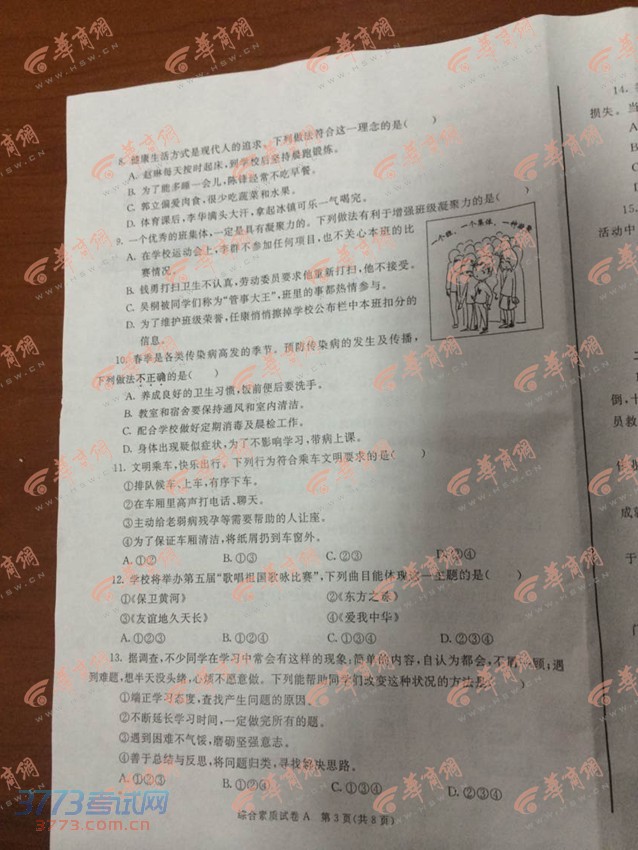 8. 健康生活方式是现代人的追求。下列做法符合这一理念的是(　　)
A. 赵琳每天按时起床,到学校后坚持晨跑锻炼。
B. 为了能多睡一会儿,陈锋经常不吃早餐。
C. 郭立偏爱肉食,很少吃蔬菜和水果。
D. 体育课后,李华满头大汗,拿起冰镇可乐一气喝完。
9. 一个优秀的班集体,一定是具有凝聚力的。下列做法有利于增强班级凝聚力的是(　　)
A. 在学校运动会上,李群不参加任何项目,也不关心本班的比
赛情况
B. 钱勇打扫卫生不认真,劳动委员要求他重新打扫,他不接受。
C. 吴桐被同学们称为“管事大王”,班里的事都热情参与。
D. 为了维护班级荣誉,任康悄悄擦掉学校公布栏中本班扣分的
信息。
10. 春季是各类传染病高发的季节。预防传染病的发生及传播,
下列做法不正确的是(　　)
A. 养成良好的卫生习惯,饭前便后要洗手。
B. 教室和宿舍要保持通风和室内清洁。
C. 配合学校做好定期消毒及晨检工作。
D. 身体出现疑似症状,为了不影响学习,带病上课。
11. 文明乘车,快乐出行。下列行为符合乘车文明要求的是(　　)
①排队候车、上车,有序下车。
②在车厢里高声打电话、聊天。
③主动给老弱病残孕等需要帮助的人让座。
④为了保证车厢清洁,将纸屑扔到车窗外。
A. ①②　B. ①③　C. ②③　D. ②④
12. 学校将举办第五届“歌唱祖国歌咏比赛”,下列曲目能体现这一主题的是(　　)
①《保卫黄河》　②《东方之珠》
③《友谊地久天长》　④《爱我中华》
A. ①②③　B. ①②④　C. ①③④　D. ②③④
13. 据调查,不少同学在学习中常会有这样的现象:简单的内容,自认为都会,不屑一顾;遇
到难题,想半天没头绪,心烦不愿意做。下列能帮助同学们改变这种状况的方法是(　　)
①端正学习态度,查找产生问题的原因。
②不断延长学习时间,一定做完所有的题。
③遇到困难不气馁,磨砺坚强意志。
④善于总结与反思,将问题归类,寻找解决思路。
A. ①②③　B. ①②④　C. ①③④　D. ②③④
综合素质试卷 A　第 3 页(共 8 页)
14.
损失。当
15.
活动中
倒,十
员救
成就
华商网
WWW.HSW.CN
3773考试网
3773.com.cn